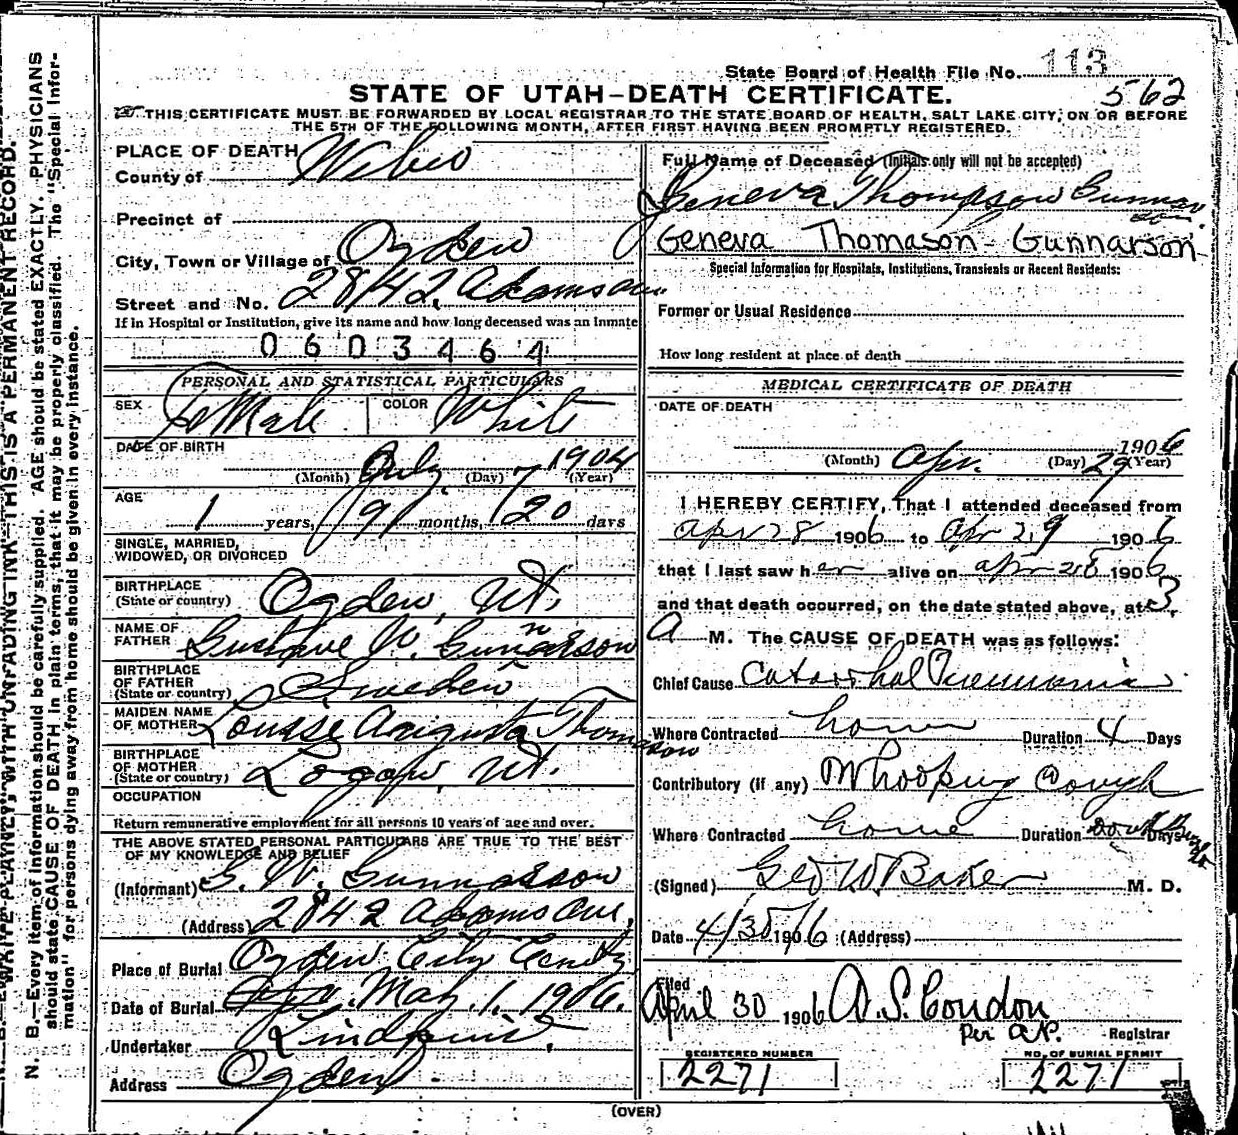 State Board of Health File No. 113
562
STATE OF UTAH—DEATH CERTIFICATE.
THIS CERTIFICATE MUST BE FORWARDED BY LOCAL REGISTRAR TO THE STATE BOARD OF HEALTH, SALT LAKE CITY, ON OR BEFORE
THE 5TH OF THE FOLLOWING MONTH, AFTER FIRST HAVING BEEN PROMPTLY REGISTERED.
PLACE OF DEATH
County of Weber
Precinct of
City, Town or Village of Ogden
Street and No. 2842 Adams Ave.
If in Hospital or Institution, give its name and how long deceased was an inmate
0603464
PERSONAL AND STATISTICAL PARTICULARS
SEX FeMale COLOR White
DATE OF BIRTH
(Month) July (Day) 7 1904 (Year)
AGE
1 years, 9 months, 20 days
SINGLE, MARRIED,
WIDOWED, OR DIVORCED
BIRTHPLACE
(State or country) Ogden, Ut.
NAME OF
FATHER Gustave W. Gunnarson
BIRTHPLACE
OF FATHER
(State or country) Sweden
MAIDEN NAME
OF MOTHER Louise Augusta Thomasson
BIRTHPLACE
OF MOTHER
(State or country) Logan, Ut.
OCCUPATION
Return remunerative employment for all persons 10 years of age and over.
THE ABOVE STATED PERSONAL PARTICULARS ARE TRUE TO THE BEST
OF MY KNOWLEDGE AND BELIEF
(Informant) G. W. Gunnarson
(Address) 2842 Adams Ave.
Place of Burial Ogden City Cemty
Date of Burial Apr. May. 1. 1906.
Undertaker Lindquist.
Address Ogden
Full Name of Deceased (Initials only will not be accepted)
Geneva Thompson Gunnarson
Geneva Thomason Gunnarson
Special Information for Hospitals, Institutions, Transients or Recent Residents:
Former or Usual Residence
How long resident at place of death
MEDICAL CERTIFICATE OF DEATH
DATE OF DEATH
1906
(Month) Apr. (Day) 29 (Year)
I HEREBY CERTIFY, That I attended deceased from
Apr 28 1906 to Apr 29 1906
that I last saw her alive on Apr 28 1906
and that death occurred, on the date stated above, at 3
A M. The CAUSE OF DEATH was as follows:
Chief Cause Catarrhal Pneumonia
Where Contracted home Duration 4 Days
Contributory (if any) Whooping Cough
Where Contracted home Duration Days
(Signed) Geo W. Baker M. D.
Date 4/30 1906 (Address)
Filed
April 30 1906 A. S. Condon
Per A.P. Registrar
REGISTERED NUMBER
2271
NO. OF BURIAL PERMIT
2271
(OVER)
WRITE PLAINLY, WITH UNFADING INK—THIS IS A PERMANENT RECORD.
N. B.—Every item of information should be carefully supplied. AGE should be stated EXACTLY. PHYSICIANS
should state CAUSE OF DEATH in plain terms, that it may be properly classified. The "Special Infor-
mation" for persons dying away from home should be given in every instance.